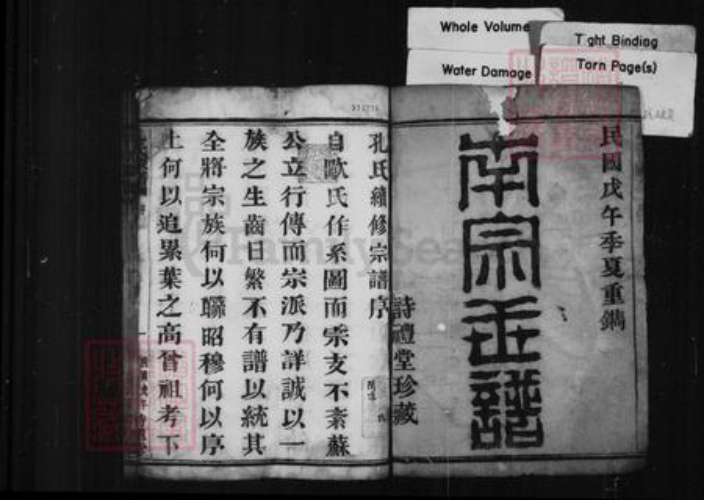 Whole Volume
Tight Binding
Water Damage
Torn Page(s)
民國戊午季夏重鐫
南宗正譜
詩禮堂珍藏
孔氏續修宗譜序
自歐氏作系圖而宗支不紊蘇
公立行傳而宗派乃詳誠以一
族之生齒日繁不有譜以統其
全將宗族何以聯昭穆何以序
上何以追累葉之高曾祖考下